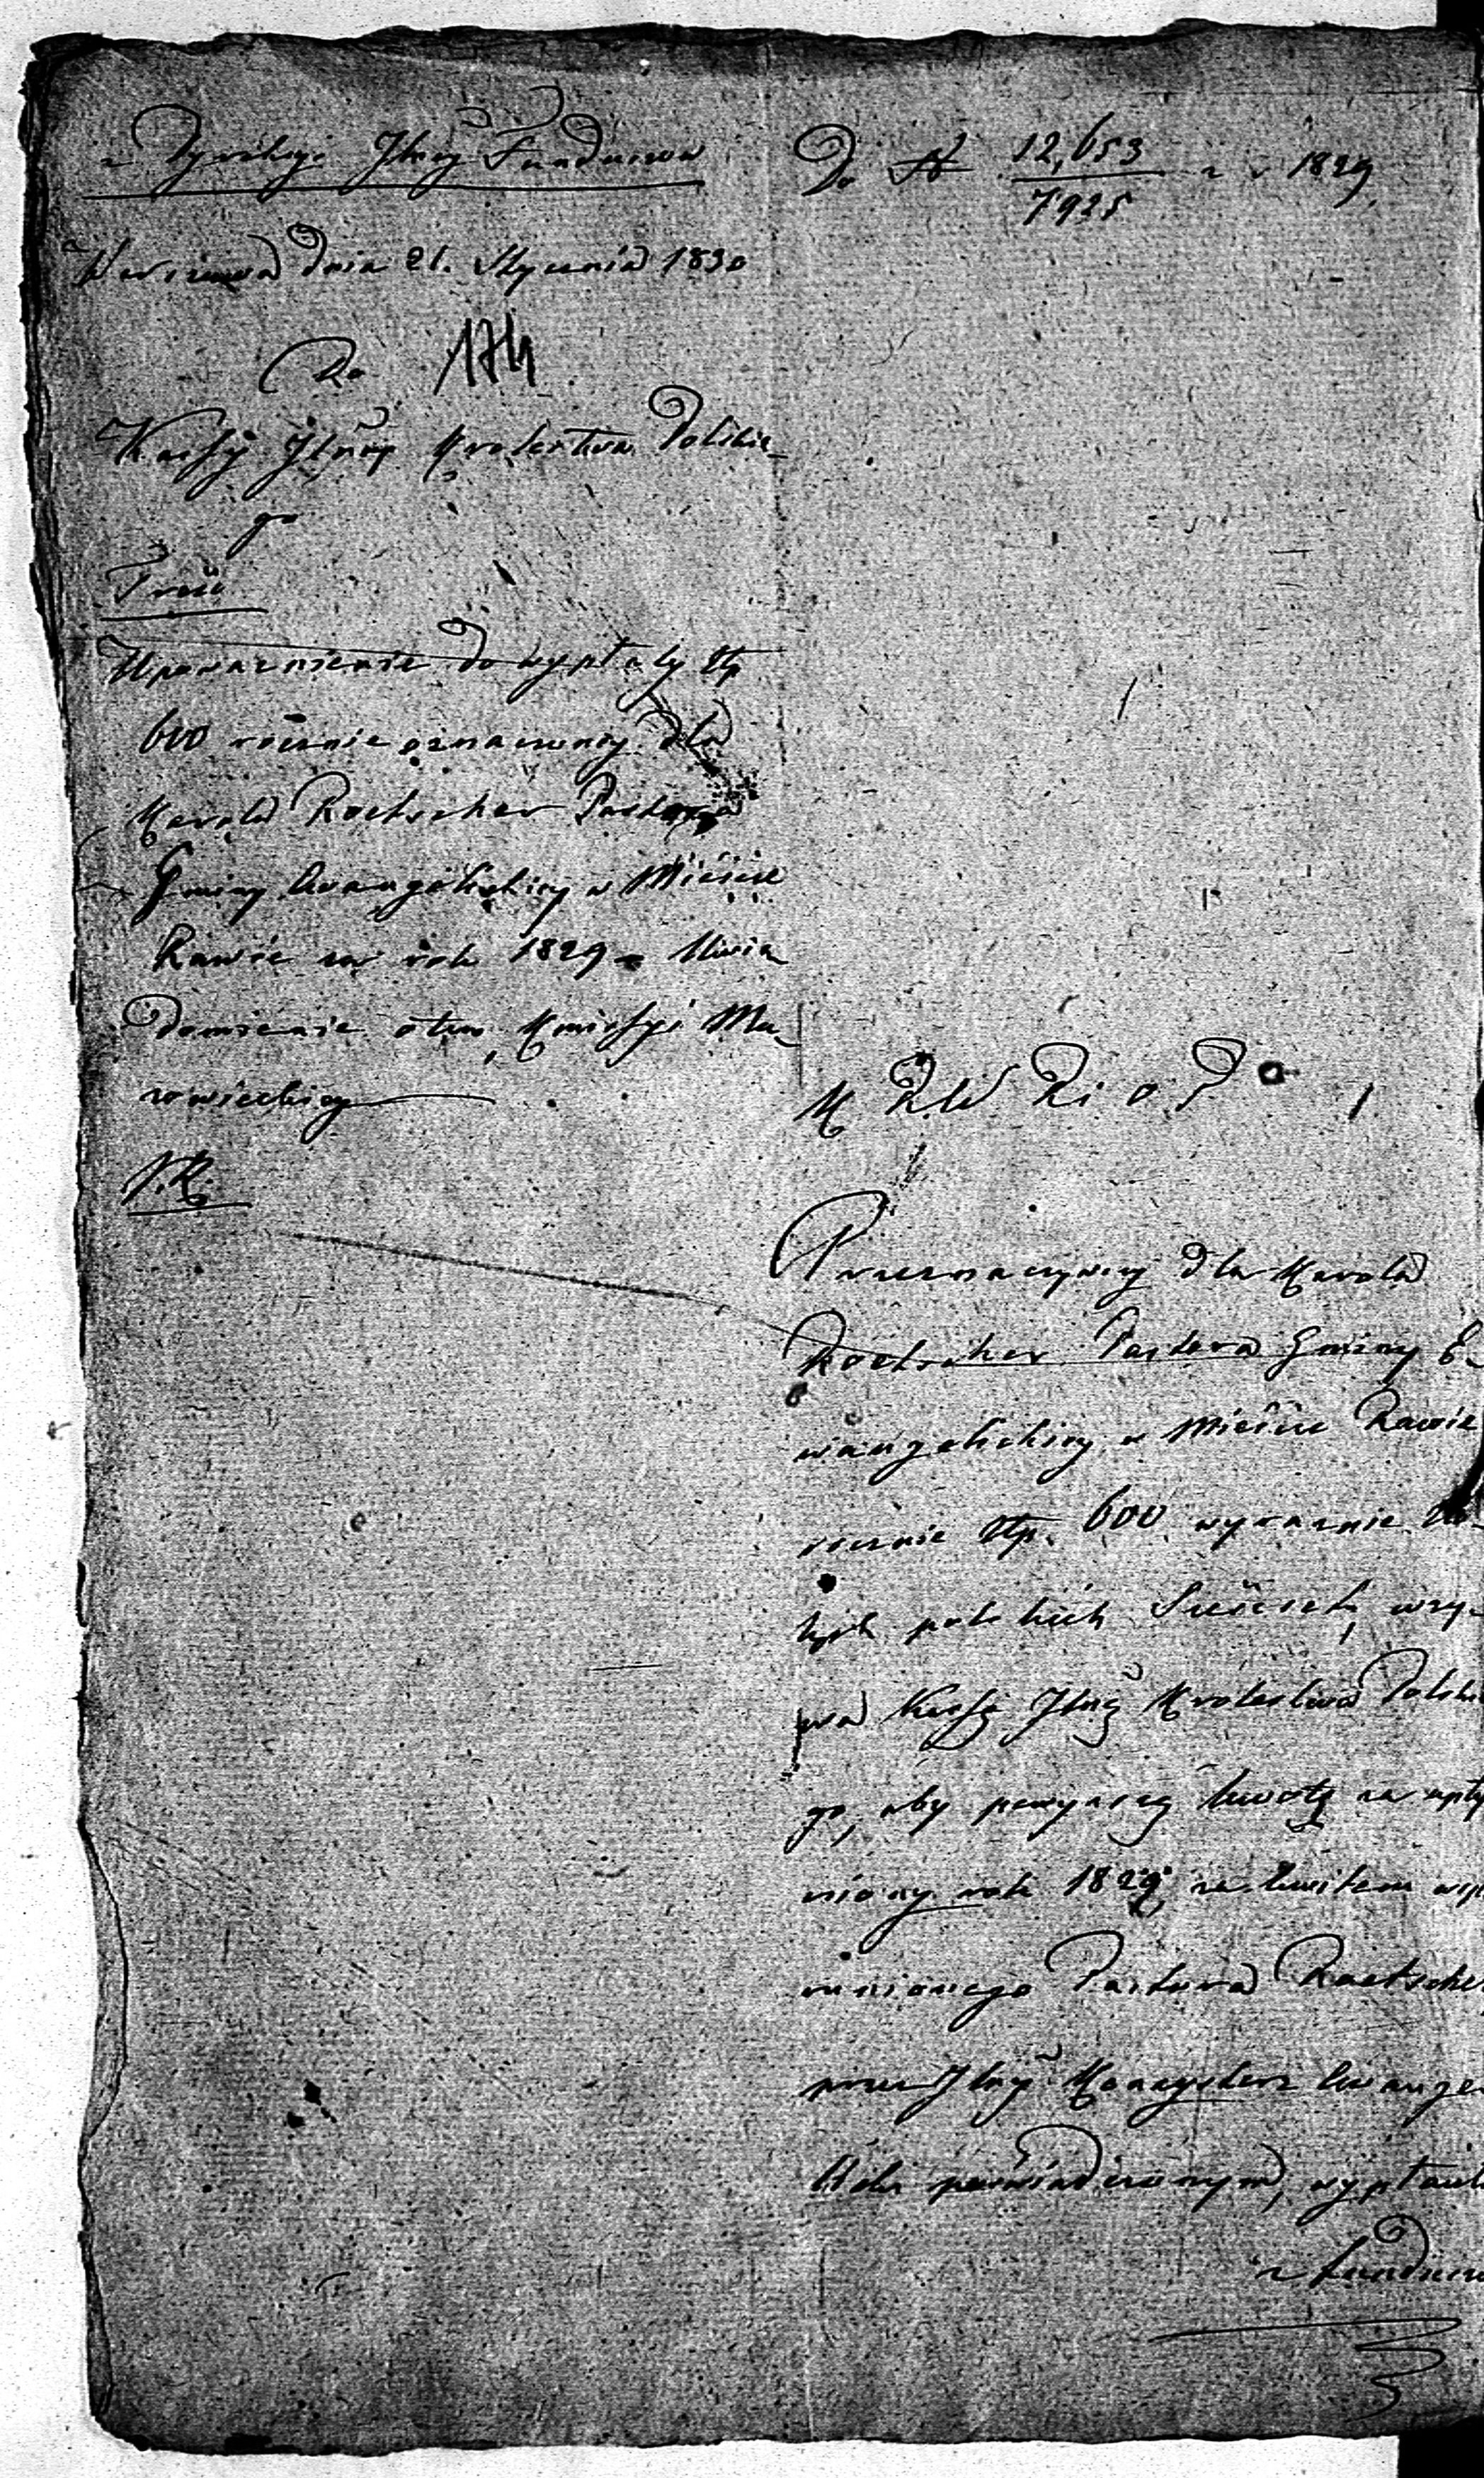 z Dyrekcyi Jlnéy Funduszow
Warszawa dnia 21. Stycznia 1830
Do 174
Kassy Jlnéy Krolestwa Polskie-
go
Treść
Upoważnienie do wypłaty Złp
600 rocznie oznaczony dla
Karola Roetscher Pastora
Gminy Ewangelickiey w Mieście
Rawie za rok 1829 – Uwia-
domienie o tem Kmissyi Ma-
zowieckiey
Do № 12,653 / 7925 z r 1829.
K R. W R i O P
Przeznaczywszy dla Karola
Roetscher Pastora Gminy E-
wangelickiey w Mieście Rawie
rocznie Złp. 600 wyraznie Zło-
tych polskich Sześćset, wzy-
wa Kassę Jlną Krolestwa Polskie
go, aby powyższą kwotę za upły
niony rok 1829 za kwitem wspo
mnionego Pastora Roetscher
przez Jlny Konsystorz Ewange
licki poświadczonym, wypłaciła
z Funduszu